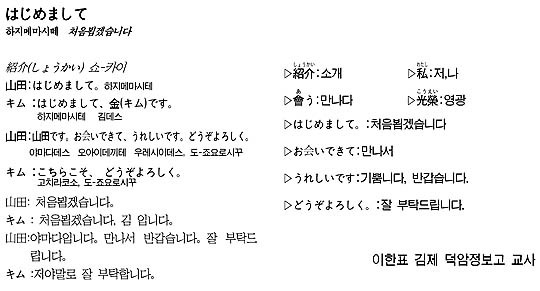 はじめまして
하지메마시떼 처음뵙겠습니다
紹介(しょうかい) 쇼-카이
山田:はじめまして。하지메마시테
キム :はじめまして、金(キム)です。
하지메마시테 김데스
山田:山田です。お会いできて、うれしいです。どうぞよろしく。
야마다데스 오아이데끼테 우레시이데스, 도-죠요로시꾸
キム :こちらこそ、どうぞよろしく。
고치라코소, 도-죠요로시꾸
山田: 처음뵙겠습니다.
キム : 처음뵙겠습니다, 김 입니다.
山田:야마다입니다. 만나서 반갑습니다. 잘 부탁드
립니다.
キム : 저야말로 잘 부탁합니다.
しょうかい わたし
▷紹介:소개 ▷私:저,나
あ こうえい
▷會う:만나다 ▷光榮:영광
▷はじめまして。:처음뵙겠습니다
▷お会いできて:만나서
▷うれしいです:기쁩니다, 반갑습니다.
▷どうぞよろしく。:잘 부탁드립니다.
이한표 김제 덕암정보고 교사